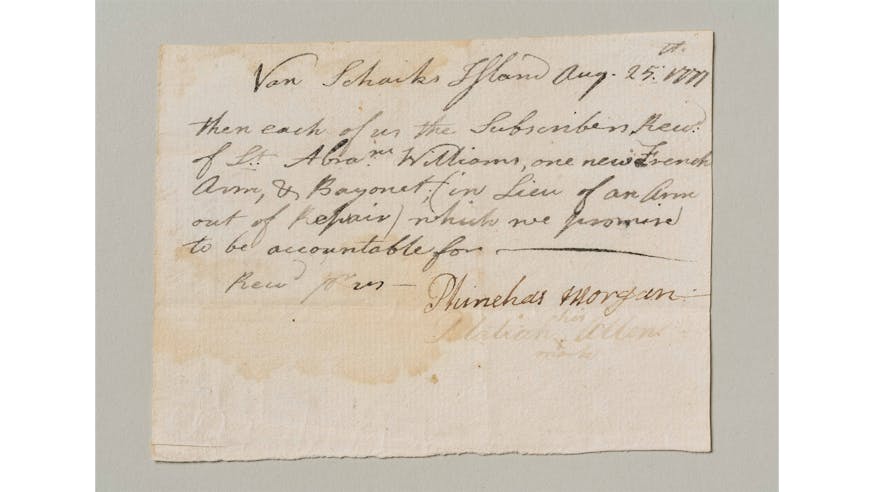 Van Schaiks Island Aug. 25th. 1777
then each of us the Subscribers Recd.
of Lt. Abram Williams, one new French
Arm, & Bayonet, (in Lieu of an Arm
out of Repair) which we promise
to be accountable for
Recd pr us — Phinehas Morgan
his
Allen
mark